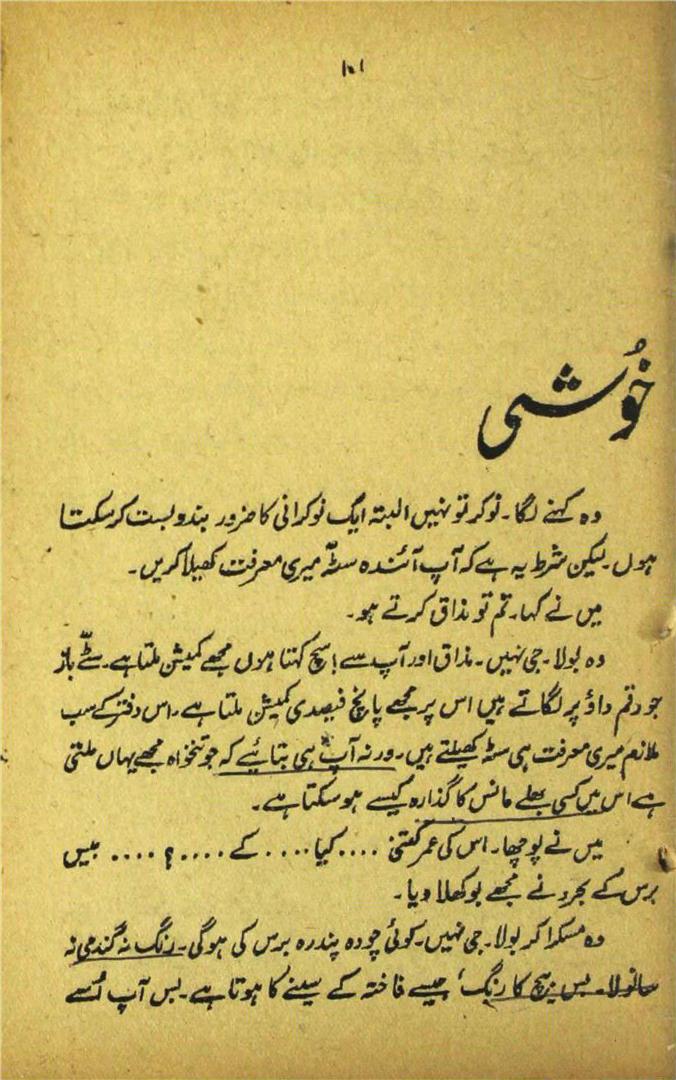 ۱۰۱
خُوشی
وہ کہنے لگا۔ نوکر تو نہیں البتہ ایک نوکرانی کا ضرور بندوبست کر سکتا
ہوں۔ لیکن شرط یہ ہے کہ آپ آئندہ سٹّہ میری معرفت کھیلا کریں۔
میں نے کہا۔ تم تو مذاق کرتے ہو۔
وہ بولا۔ جی نہیں۔ مذاق اور آپ سے! سچ کہتا ہوں مجھے کمیشن ملتا ہے۔ سٹّے باز
جو رقم داؤ پر لگاتے ہیں اس پر مجھے پانچ فیصدی کمیشن ملتا ہے۔ اس دفتر کے سب
ملازم میری معرفت ہی سٹہ کھیلتے ہیں۔ ورنہ آپ ہی بتائیے کہ جو تنخواہ مجھے یہاں ملتی
ہے اس میں کسی بھلے مانس کا گذارہ کیسے ہو سکتا ہے۔
میں نے پوچھا۔ اس کی عمر کتنی .... کیا .... کے .... ؟ .... بیس
برس کے مجرد نے مجھے بوکھلا دیا۔
وہ مسکرا کر بولا۔ جی نہیں۔ کوئی چودہ پندرہ برس کی ہوگی۔ رنگ نہ گندمی نہ
سانولا۔ بس بیچ کا رنگ، جیسے فاختہ کے سینے کا ہوتا ہے۔ بس آپ اُسے